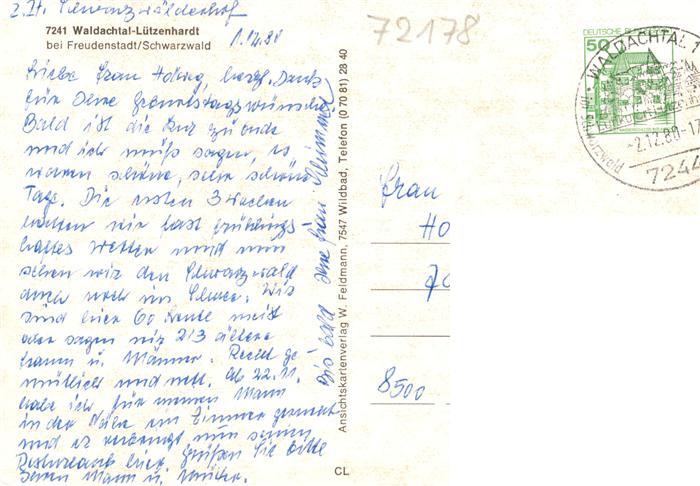 z. Zt. Schwarzwälderhof
7241 Waldachtal-Lützenhardt
bei Freudenstadt/Schwarzwald
1.12.80
72178
Liebe Frau herzl. Dank
für Ihre Geburtstagswünsche
Bald ist die Kur zu Ende
und ich muß sagen, es
waren schöne, sehr schöne
Tage. Die ersten 3 Wochen
hatten wir fast frühlings
haftes Wetter und nun
sehen wir den Schwarzwald
doch noch im Schnee. Wir
sind hier 60 Leute meist
aber sagen wir 2/3 ältere
Frauen u. Männer. Recht ge
mütlich und nett. Ab 22.11.
habe ich für meinen Mann
in der Nähe ein Zimmer gemietet
und er verbringt nun seinen
Resturlaub hier. Grüßen Sie bitte
Ihren Mann u. Mutter.
Bis bald Ihre Frau
Ansichtskartenverlag W. Feldmann, 7547 Wildbad, Telefon (0 70 81) 28 40
CL
DEUTSCHE BU
50
WALDACHTAL 1
-2.12.80-17
7244
Frau
HO
8500